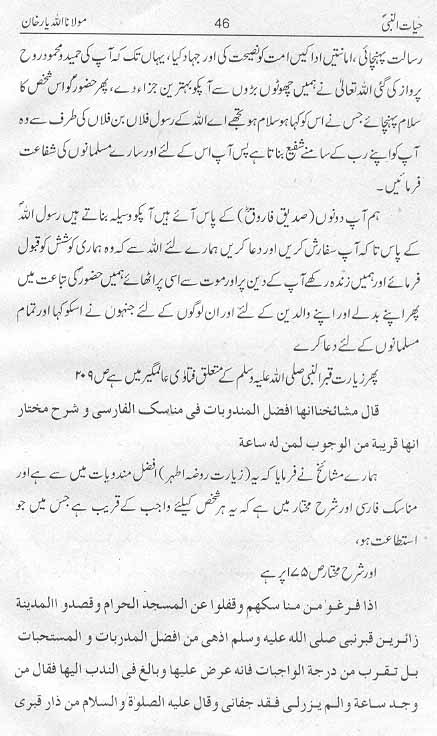 حیات النبیؐ 46 مولانا اللہ یار خان
رسالت پہنچائی، امانتیں ادا کیں امت کو نصیحت کی اور جہاد کیا، یہاں تک کہ آپ کی حمید و محمود روح
پرواز کی گئی اللہ تعالیٰ نے ہمیں چھوٹوں بڑوں سے آپکو بہترین جزاء دے، پھر حضورؐ کو اس شخص کا
سلام پہنچائے جس نے اس کو کہا ہو سلام ہو تجھے اے اللہ کے رسول فلاں بن فلاں کی طرف سے وہ
آپ کو اپنے رب کے سامنے شفیع بناتا ہے پس آپ اس کے لئے اور سارے مسلمانوں کی شفاعت
فرمائیں۔
ہم آپ دونوں (صدیق فاروقؓ) کے پاس آئے ہیں آپکو وسیلہ بناتے ہیں رسول اللہؐ
کے پاس تا کہ آپ سفارش کریں اور دعا کریں ہمارے لئے اللہ سے کہ وہ ہماری کوشش کو قبول
فرمائے اور ہمیں زندہ رکھے آپ کے دین پر اور موت سے اسی پر اٹھائے ہمیں حضور کی تباعت میں
پھر اپنے بدلے اور اپنے والدین کے لئے اور ان لوگوں کے لئے جنہوں نے اسکو کہا اور تمام
مسلمانوں کے لئے دعا کرے
پھر زیارت قبر النبی صلی اللہ علیہ وسلم کے متعلق فتاوٰی عالمگیر میں ہے ص ۲۰۹
قال مشائخنا انها افضل المندوبات فی مناسک الفارسی و شرح مختار
انها قریبة من الوجوب لمن له ساعة
ہمارے مشائخ نے فرمایا کہ یہ (زیارت روضہ اطہر) افضل مندوبات میں سے ہے اور
مناسک فارسی اور شرح مختار میں ہے کہ یہ ہر شخص کیلئے واجب کے قریب ہے جس میں جو
استطاعت ہو،
اور شرح مختار ص ۱۷۵ پر ہے
اذا فرغوا من مناسکهم وقفلوا عن المسجد الحرام وقصدوا المدینة
زائرین قبر نبی صلی الله علیه وسلم اذهی من افضل المدربات و المستحبات
بل تقرب من درجة الواجبات فانه عرض علیها وبالغ فی الندب الیها فقال من
وجد ساعة والم یزرلی فقد جفانی وقال علیه الصلوٰة والسلام من ذار قبری